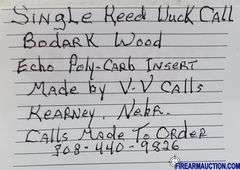 Single Reed Duck Call
Bodark Wood
Echo Poly-Carb Insert
Made by V-V Calls
Kearney, Nebr.
Calls Made To Order
308-440-9826
FIREARMAUCTION.COM